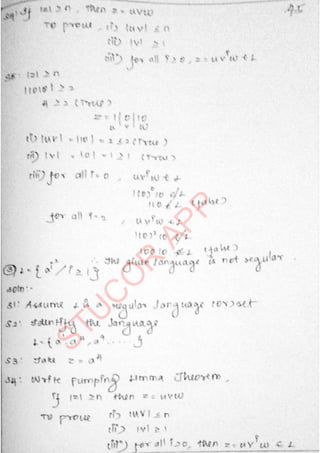 S4: If |z| ≥ n, then z = uvw
To prove, (i) |uv| ≤ n
(ii) |v| ≥ 1
(iii) for all i ≥ 0, z = uvⁱw ∈ L
S5: |z| ≥ n
|1010| ≥ 2
4 ≥ 2 (true)
z = 1|0|10
u v w
(i) |uv| = |10| = 2 ≤ 2 (true)
(ii) |v| = |0| = 1 ≥ 1 (true)
(iii) for all i = 0, uvⁱw ∈ L
1(0)⁰10 ∉ L
110 ∉ L (false)
for all i = 2, uvⁱw ∈ L
1(0)²10 ∉ L
10010 ∉ L (false)
∴ The given language is not regular.
③ L = {aⁱ² / i ≥ 1}
Soln:-
S1: Assume L is a regular language (or) set
S2: Identify the language
L = {a¹, a⁴, a⁹, .....}
S3: Take z = a⁴
S4: Write Pumping Lemma Theorem,
If |z| ≥ n then z = uvw
To prove (i) |uv| ≤ n
(ii) |v| ≥ 1
(iii) for all i ≥ 0, then z = uvⁱw ∈ L
STUCOR APP